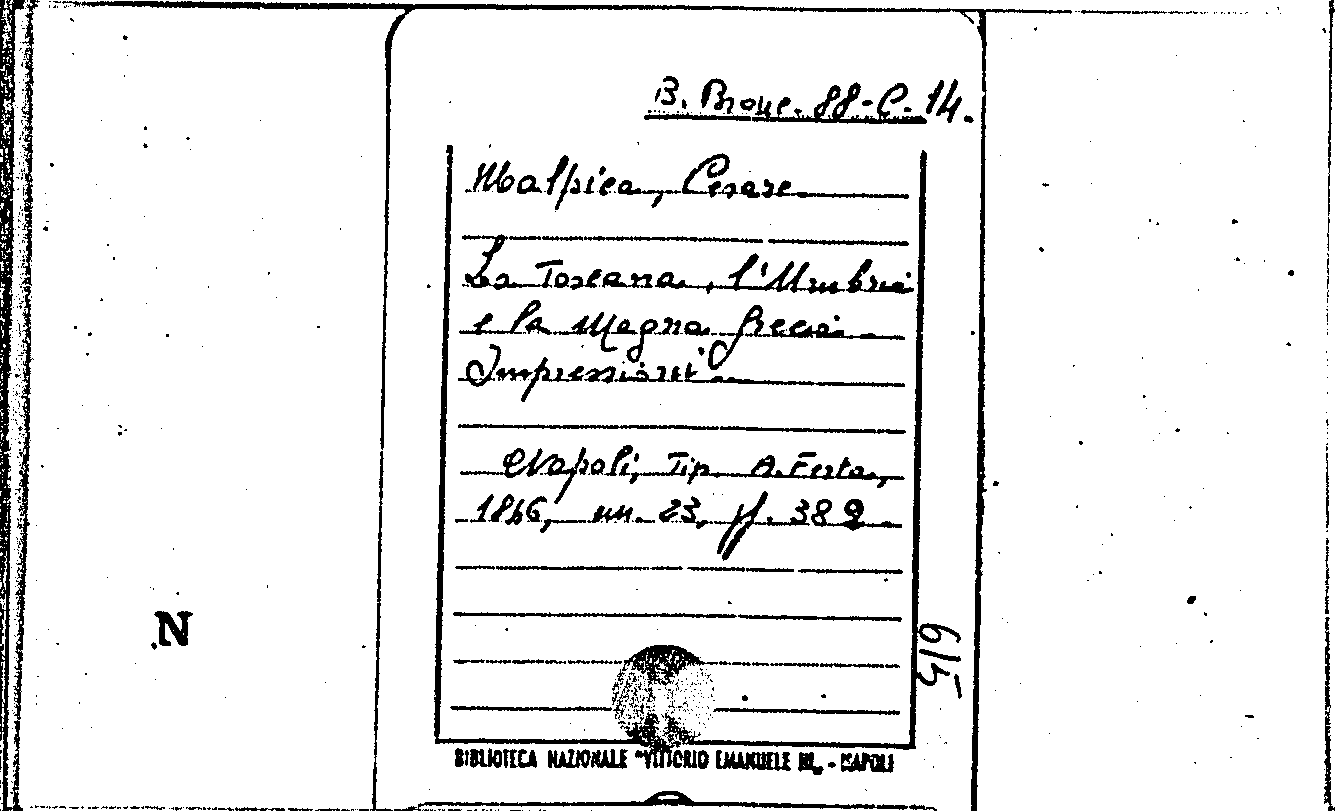 B. Prove. 88-C-14.
Malpica, Cesare
La Toscana, l'Umbria
e la Magna Grecia
Impressioni
Napoli, Tip. A. Festa,
1846, in. 23, pp. 382
615
N
BIBLIOTECA NAZIONALE "VITTORIO EMANUELE III" - NAPOLI